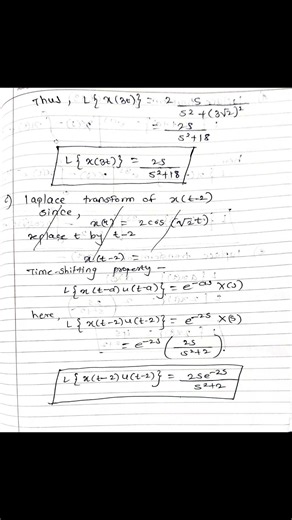 Thus, L{x(3t)} = 2 s / s² + (3√2)²
= 2s / s²+18
L{x(3t)} = 2s / s²+18
Laplace transform of x(t-2)
since, x(t) = 2cos(√2t)
replace t by t-2
x(t-2) =
Time-shifting property -
L{x(t-a)u(t-a)} = e^-as X(s)
here, L{x(t-2)u(t-2)} = e^-2s X(s)
= e^-2s (2s / s²+2)
L{x(t-2)u(t-2)} = 2se^-2s / s²+2